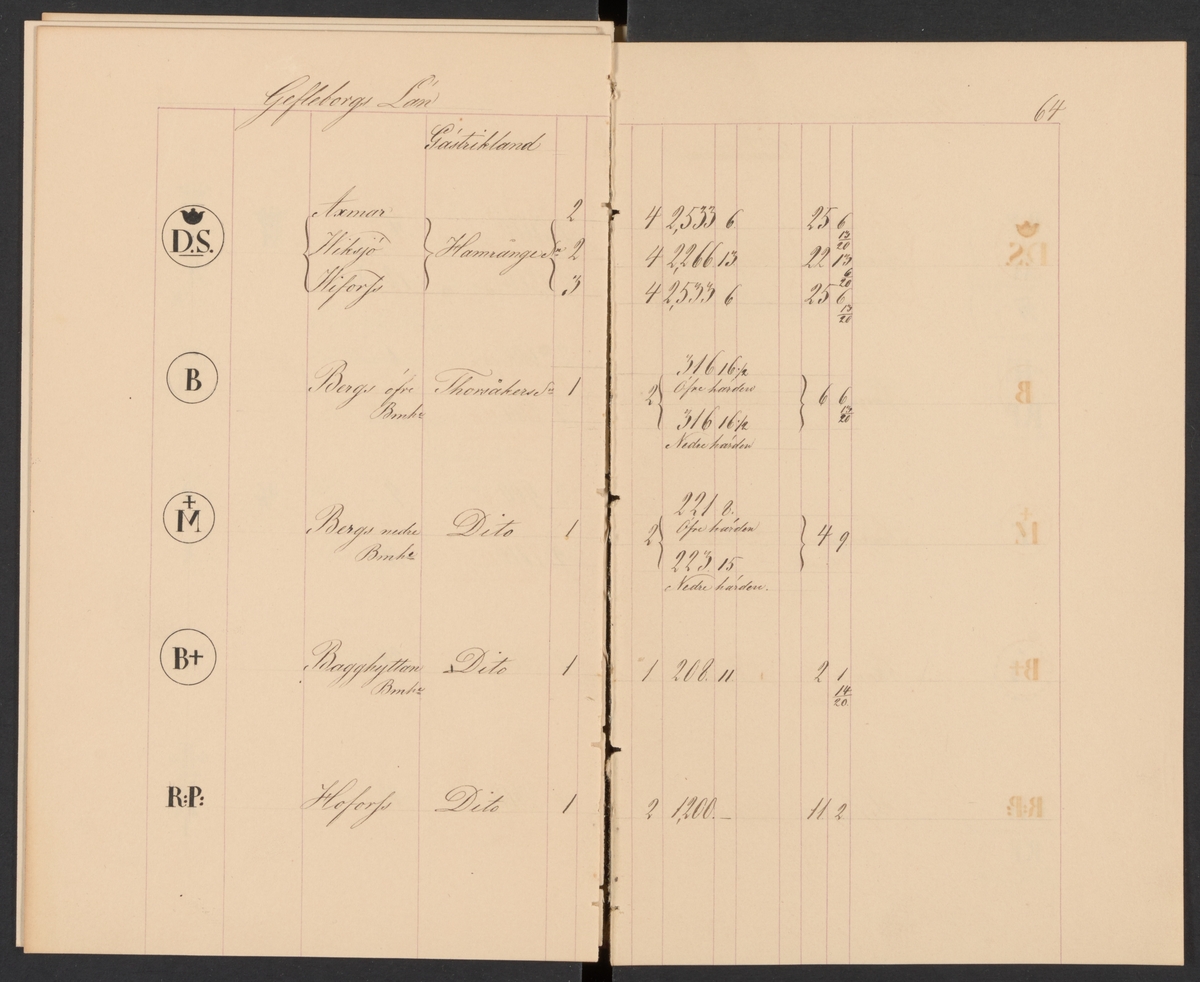 Gefleborgs Län
64
Gästrikland
D.S.
Axmar 2 4 2,533 6 25 6 13/20
Wiksjö Hamrånge Sn 2 4 2,266 13 22 13 6/20
Wiforss 3 4 2,533 6 25 6 13/20
B
Bergs öfre Thorsåkers Sn 1 2 316 16 1/2 6 6 13/20
Bmkr Öfre härden
316 16 1/2
Nedre härden
M
Bergs nedre Dito 1 2 221 8. 4 9
Bmkr Öfre härden
223 15
Nedre härden.
B+
Bagghyttan Dito 1 1 208. 11 2 1 14/20
Bmkr
R:P:
Hoforss Dito 1 2 1,200. — 11 2